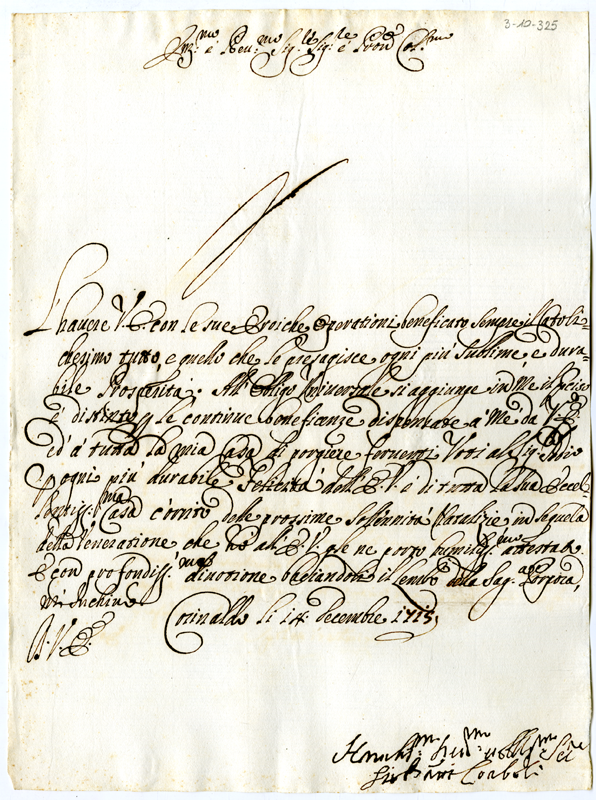 3-10-325
Em:mo e Rev:mo Sig:re Sig:re e Pron Col:mo
L'havere V. E. con le sue Eroiche operationi beneficato sempre il Catoli-
chesimo tutto, e quello che le presagisce ogni più sublime, e dura-
bile Prosperità. All' obligo Universale si aggiunge in Me il preciso
e distinto le continue beneficenze dispensate a Me da V. E.
ed à tutta la mia Casa di porgiere ferventi Voti al Sig:
p ogni più durabile Felicità dell' E. V. e di tutta la sua Eccel-
lentiss:ma Casa c'orrito delle prossime Sollinnità Natalizie in sequela
della Venerazione che hò all' E. V. gle ne porto humiliss:mo attestato
E con profondiss:ma divotione baciandoli il Lembo della Sag:a Porpora,
mi Inchino
Corinaldo li 14: Decembre 1715,
D. V. E.
Humiliss:mo Dev:mo Obblig:mo Se:re